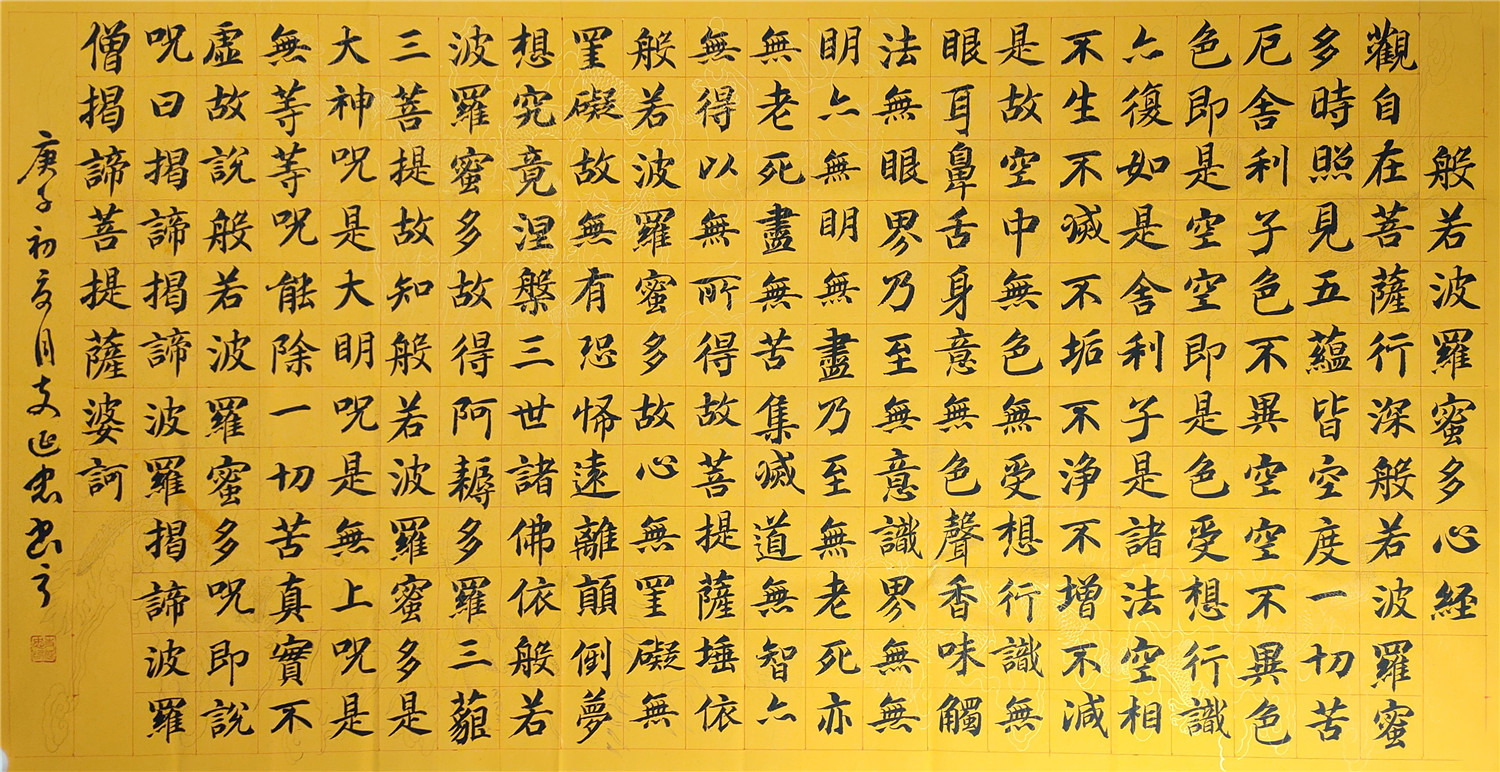 般若波羅蜜多心経
觀自在菩薩行深般若波羅蜜
多時照見五蘊皆空度一切苦
厄舍利子色不異空空不異色
色即是空空即是色受想行識
亦復如是舍利子是諸法空相
不生不滅不垢不浄不增不減
是故空中無色無受想行識無
眼耳鼻舌身意無色聲香味觸
法無眼界乃至無意識界無無
明亦無無明盡乃至無老死亦
無老死盡無苦集滅道無智亦
無得以無所得故菩提薩埵依
般若波羅蜜多故心無罣礙無
罣礙故無有恐怖遠離顛倒夢
想究竟涅槃三世諸佛依般若
波羅蜜多故得阿耨多羅三藐
三菩提故知般若波羅蜜多是
大神呪是大明呪是無上呪是
無等等呪能除一切苦真實不
虛故說般若波羅蜜多呪即說
呪曰揭諦揭諦波羅揭諦波羅
僧揭諦菩提薩婆訶
庚子初夏月支延忠书